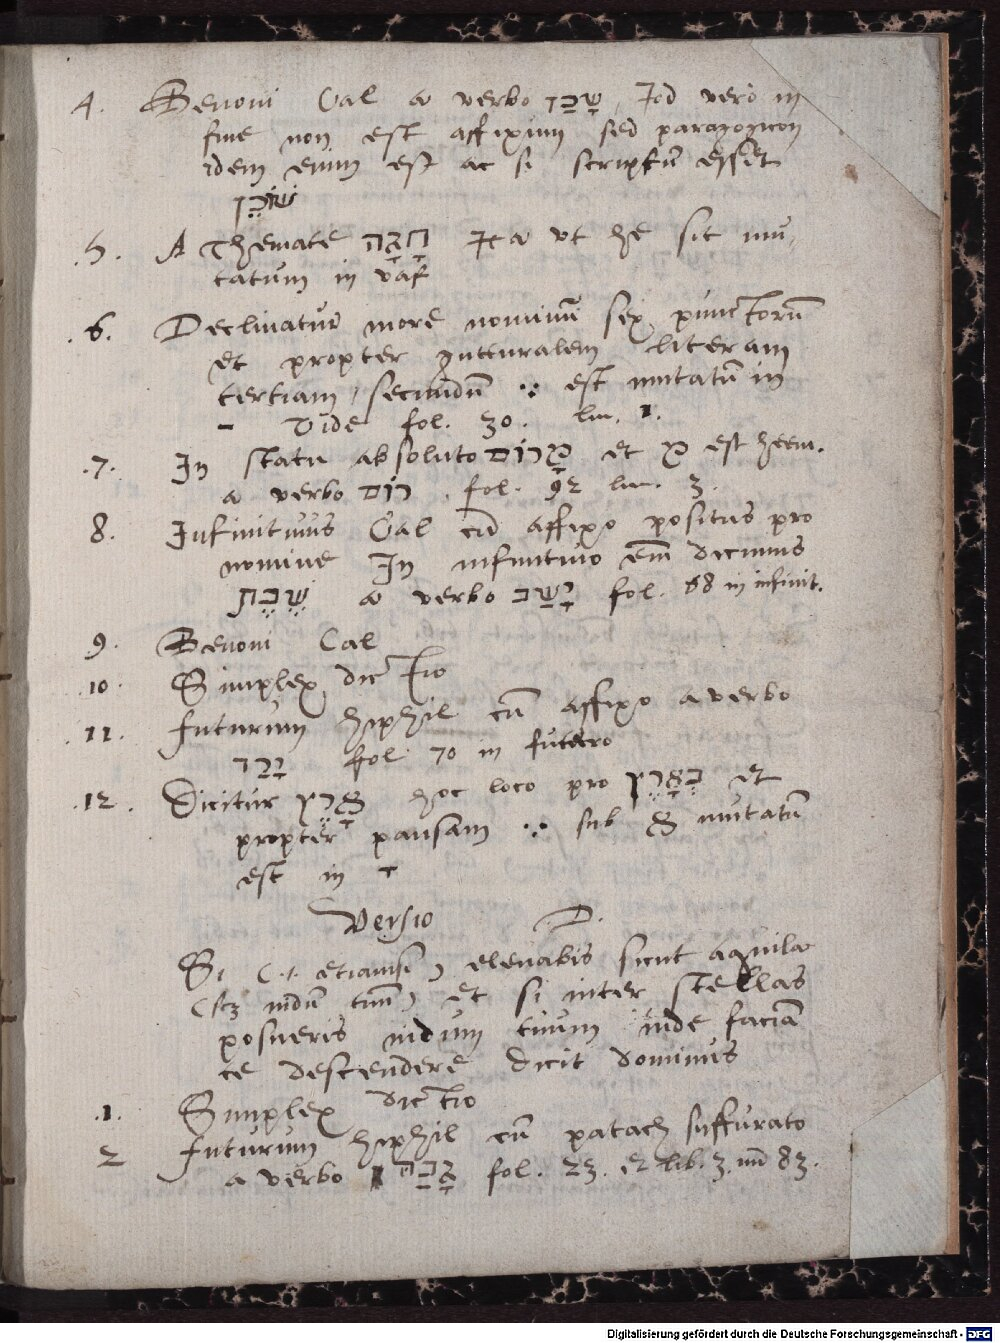 4. Benoni Cal a verbo שָׁכַן, Jod verò in
fine non est affixum sed paragogicon
idem enim est ac si scriptũ esset
שׁוֹכֵן
5. A Themate חָגָה Ita ut he sit mu-
tatum in vaf
6. Declinatur more nominũ sex punctorũ
et propter gutturalem literam
tertiam, secundũ ∵ est mutatũ in
– Vide fol. 30. lin. 1.
7. In statu absoluto מָרוֹם et מ est heem.
a verbo רוּם. fol. 92 lin. 3.
8. Infinitivus Cal cũ affixo positus pro
nomine In infinitivo em̃ dicimus
שֶׁבֶת a verbo יָשַׁב fol. 58 in infinit.
9. Benoni Cal
10. Simplex dictio
11. futurum hiphil cũ affixo a verbo
יָרַד fol. 70 in futuro
12. Dicitur אָרֶץ hoc loco pro אֶרֶץ et
propter pausam ∵ sub א mutatũ
est in ָ
Versio D.
Si (.i. etiamsi) elevabis sicut aquila
(scz nidũ tuũ) et si inter stellas
posueris nidum tuum inde faciã
te descendere dicit dominus
1. Simplex dictio
2 futurum hiphil cũ patach suffurato
a verbo גָּבַהּ fol. 23. et lib. 3. nũ 83.
Digitalisierung gefördert durch die Deutsche Forschungsgemeinschaft - DFG